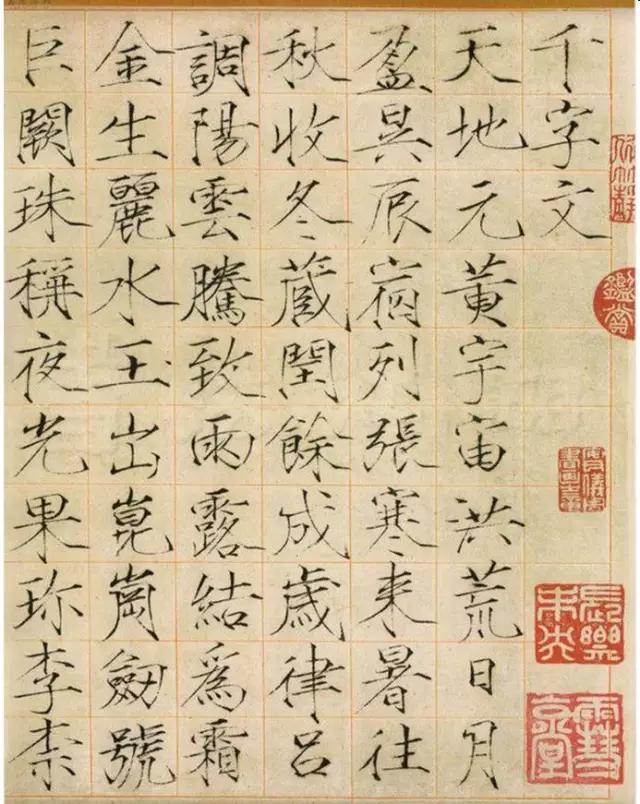 千字文
天地元黄宇宙洪荒日月
盈昃辰宿列張寒来暑往
秋收冬蔵閏餘成歳律吕
調陽雲騰致雨露結爲霜
金生麗水玉山崑崗劔號
巨闕珠稱夜光果珎李柰
鑑賞